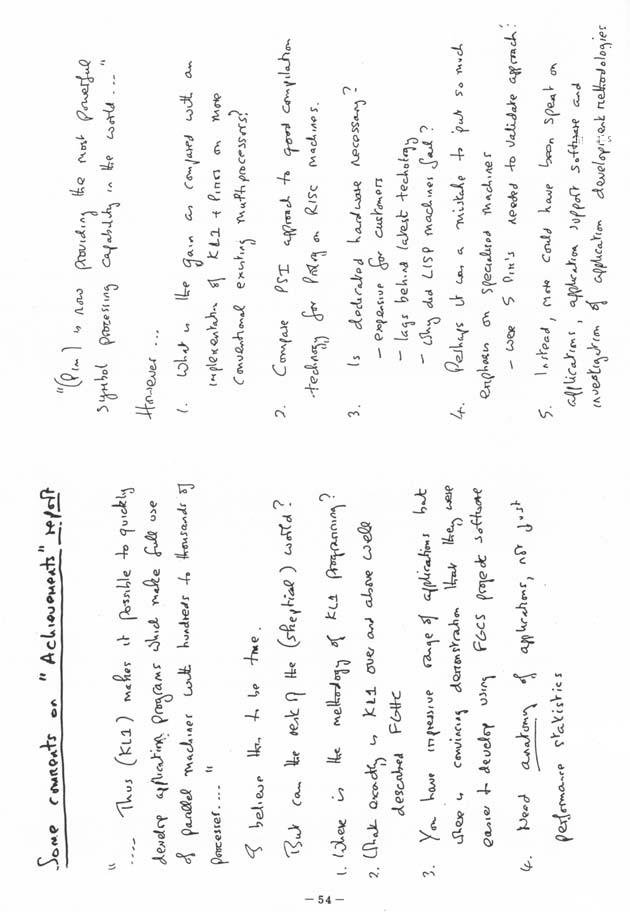 Some comments on "Achievements" report
".... Thus (KL1) makes it possible to quickly
develop application programs which make full use
of parallel machines with hundreds to thousands of
processes...."
I believe this to be true.
But can the rest of the (skeptical) world?
1. Where is the methodology of KL1 programming?
2. What exactly is KL1 over and above well
described FGHC
3. You have impressive range of applications but
where is convincing demonstration that they were
easier to develop using FGCS project software
4. Need anatomy of applications, not just
performance statistics
"(PIM) is now providing the most powerful
symbol processing capability in the world...."
However...
1. What is the gain as compared with an
implementation of KL1 + PIMOS on more
conventional existing multiprocessors?
2. Compare PSI approach to good compilation
technology for Prolog on RISC machines.
3. Is dedicated hardware necessary?
- expensive for customers
- lags behind latest techology
- why did LISP machines fail?
4. Perhaps it was a mistake to put so much
emphasis on specialised machines
- were 5 PIM's needed to validate approach?
5. Instead, more could have been spent on
applications, application support software and
investigation of application development methodologies
- 54 -